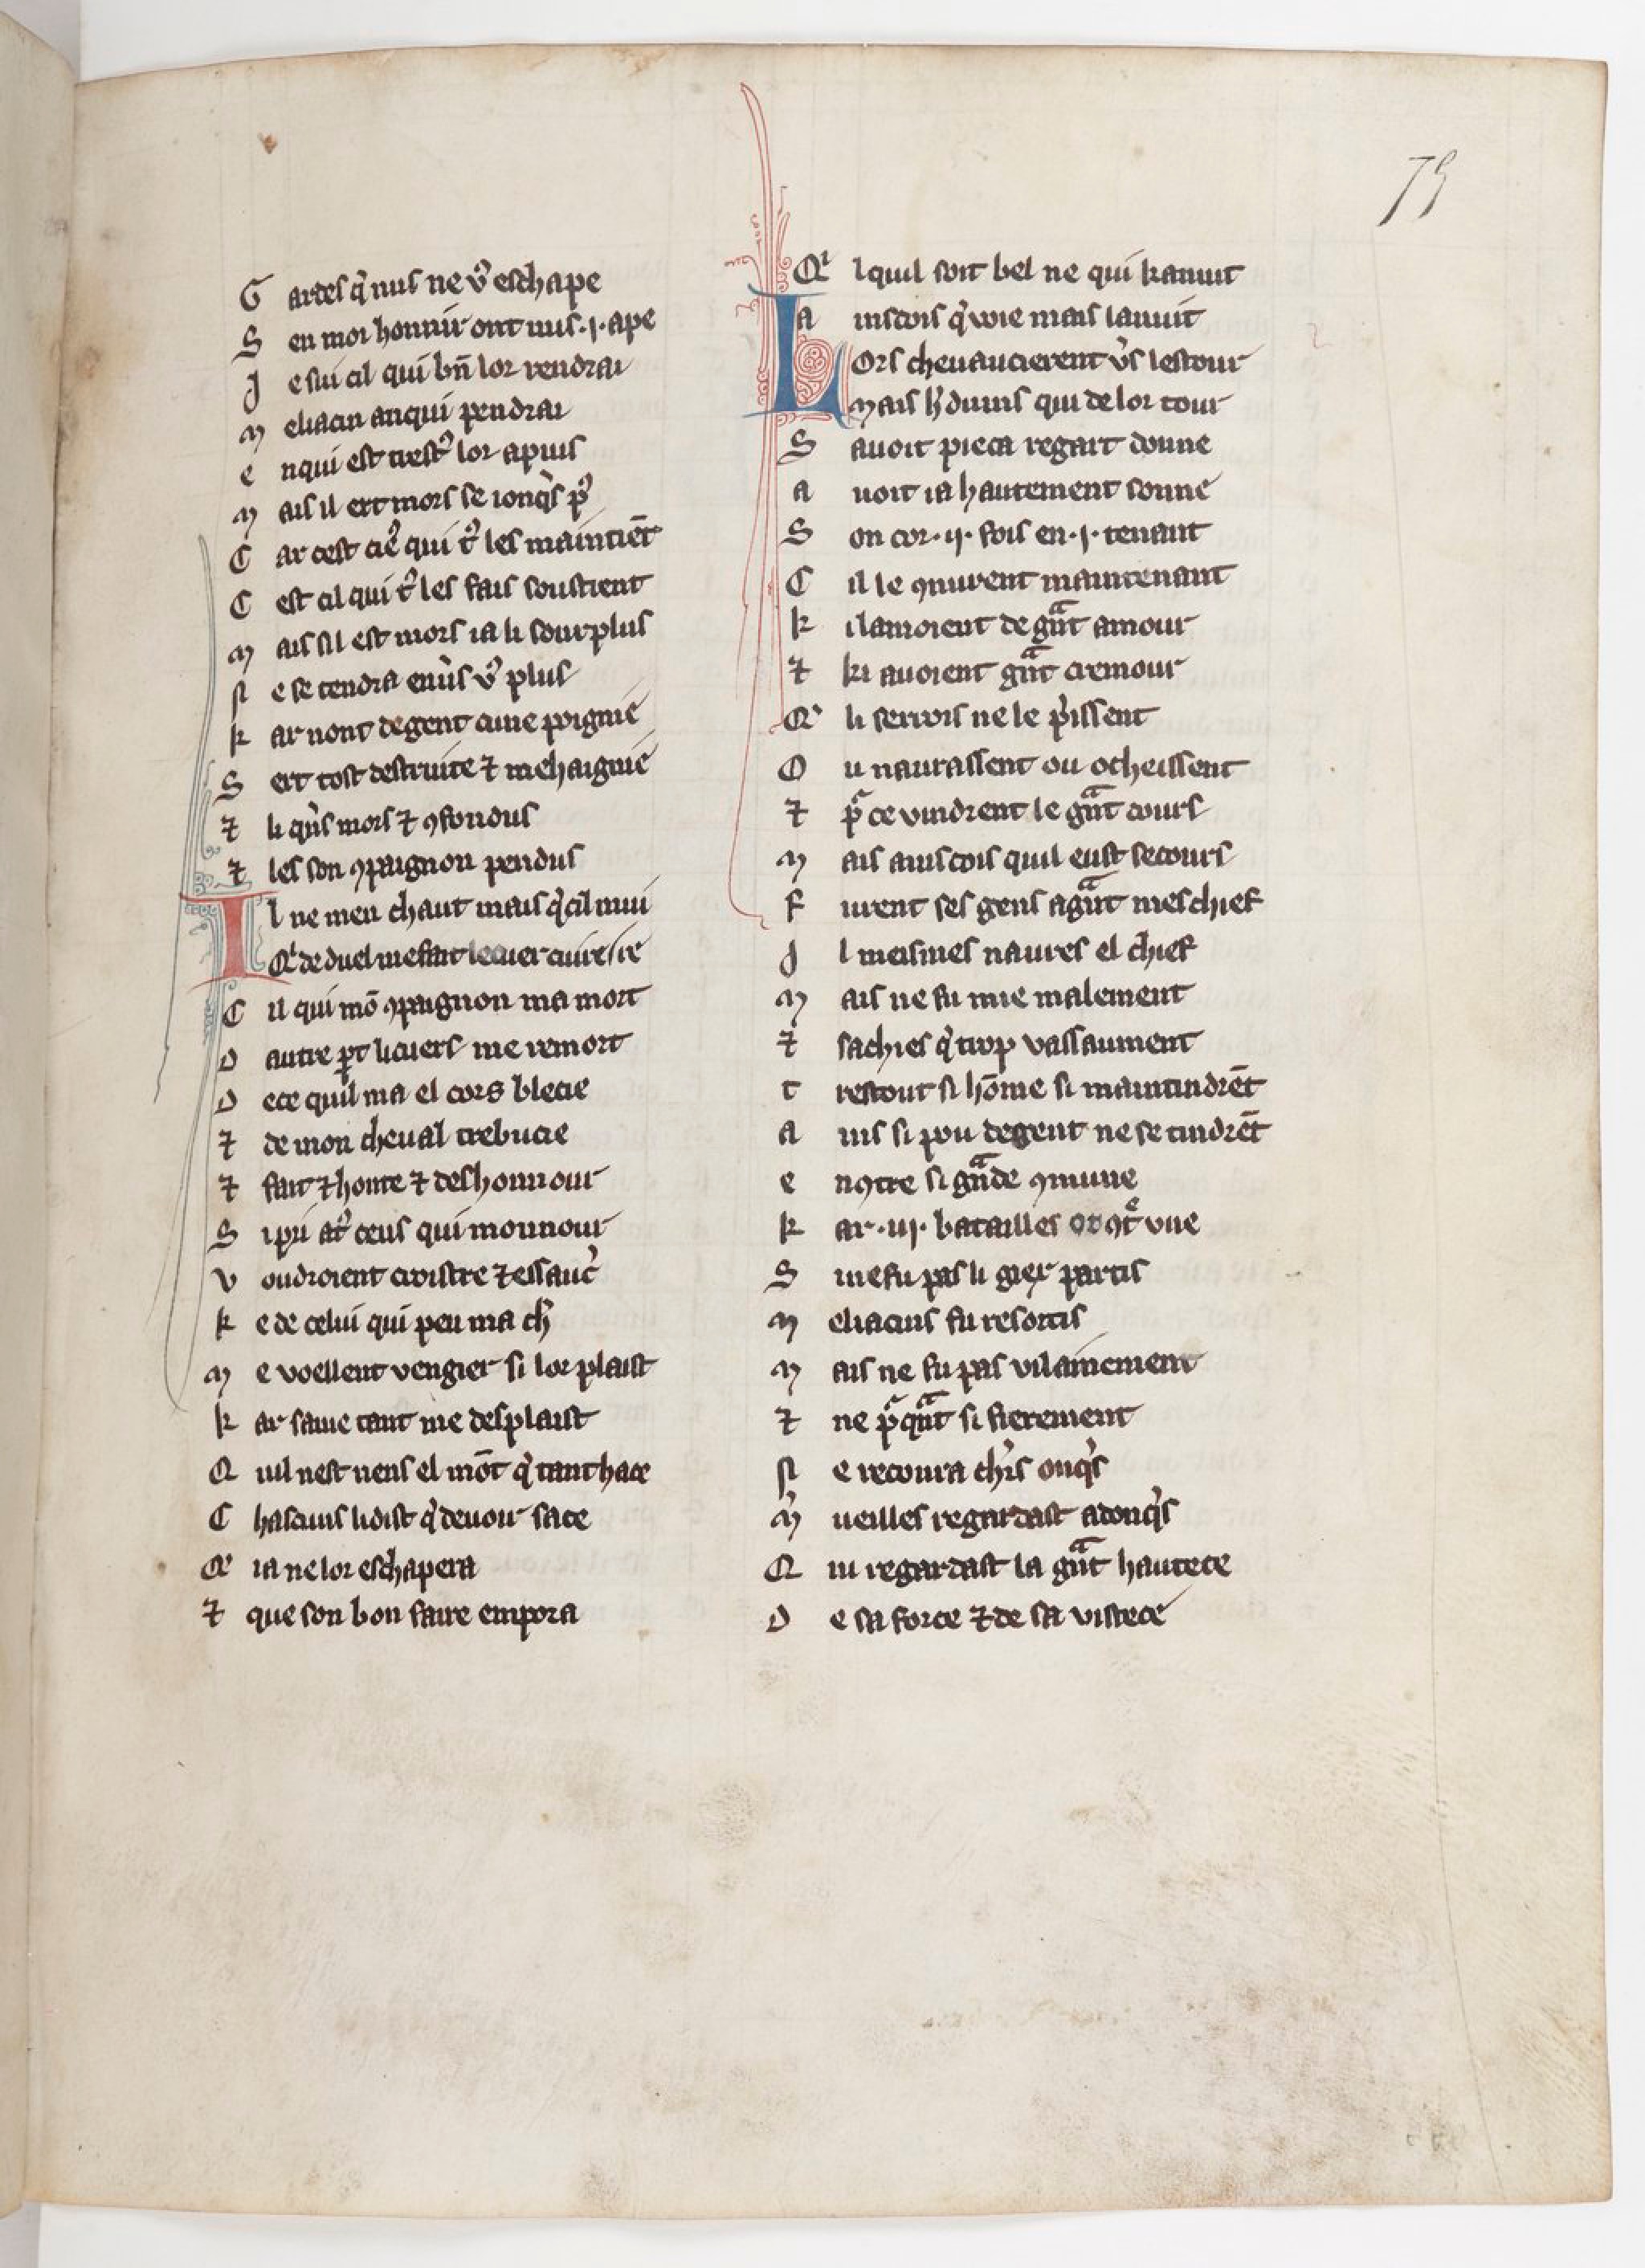 75
G ardes q̓ nus ne vꝰ eschape
S en mor honnir ont nus .j. ape
J e sui cil qui bn̄ lor rendrai
M eliacin anqui pendrai
E nqui est trestꝰ lor apuis
M ais il ert mors se ionq̓s pꝰ
C ar cest cie᷒ qui tꝰ les maintiēt
C est cil qui tꝰ les fais soustient
M ais sil est mors ia li sourplus
N e se tendra en v̓s vꝰ plus
K ar nont de gent cune poignie
S ert tost destruite ⁊ mehaignie
⁊ li q̓ns mors ⁊ ꝯfondus
⁊ les son ꝯpaignon pendus
I l ne men chaut mais q̓ cil muire
Q̓ de duel me fait le cuer cuire
C il qui mō ꝯpaignon ma mort
D autre ꝑt li cuers me remort
D e ce quil ma el cors blecie
⁊ de mon cheual trebucie
⁊ fait ⁊ honte ⁊ deshonnour
S i pri a tꝰ ceus qui mounour
V oudroient croistre ⁊ essauc̓
K e de celui qui peu ma ch̓
M e voellent vengier si lor plaist
K ar sa uie tant me desplaist
Q uil nest riens el mōt q̓ tant hace
C hascuns li dist q̓ deuoir face
Q̓ ia ne lor eschapera
⁊ que son bon faire em pora
Qͥ l quil soit bel ne qui kanuit
A inscois q̓ voie mais lanuit
L ors cheuaucierent v̓s lestour
M ais h̓duins qui de lor tour
S auoit pieca regart donne
A uoit ia hautement sonne
S on cor .ij. fois en .j. tenant
C il le ꝯnurent maintenant
K il amoient de gͣnt amour
⁊ ki auoient gͣnt cremour
Q̓ li seruois ne le p̓issent
O u naurassent ou ocheissent
⁊ pͣ ce vindrent le gͣnt cours
M ais ainscois quil eust secours
F urent ses gens a gͣnt meschief
J l meismes naures el chief
M ais ne fu mie malement
⁊ sachies q̓ trop vassaument
T restout si hōme si maintindrēt
A ins si pou de gent ne se tindrēt
E nꝯtre si gͣnde ꝯmune
K ar .iij. batailles ꝯtͤ vne
S i ne fu pas li gieꝛ partis
M eliacins fu resortis
M ais ne fu pas vilainement
⁊ ne pͣ qͣnt si fierement
N e recouura ch̓rs onq̓s
M̓ ueilles regardast adonq̓s
Q ui regardast la gͣnt hautece
D e sa force ⁊ de sa vistece